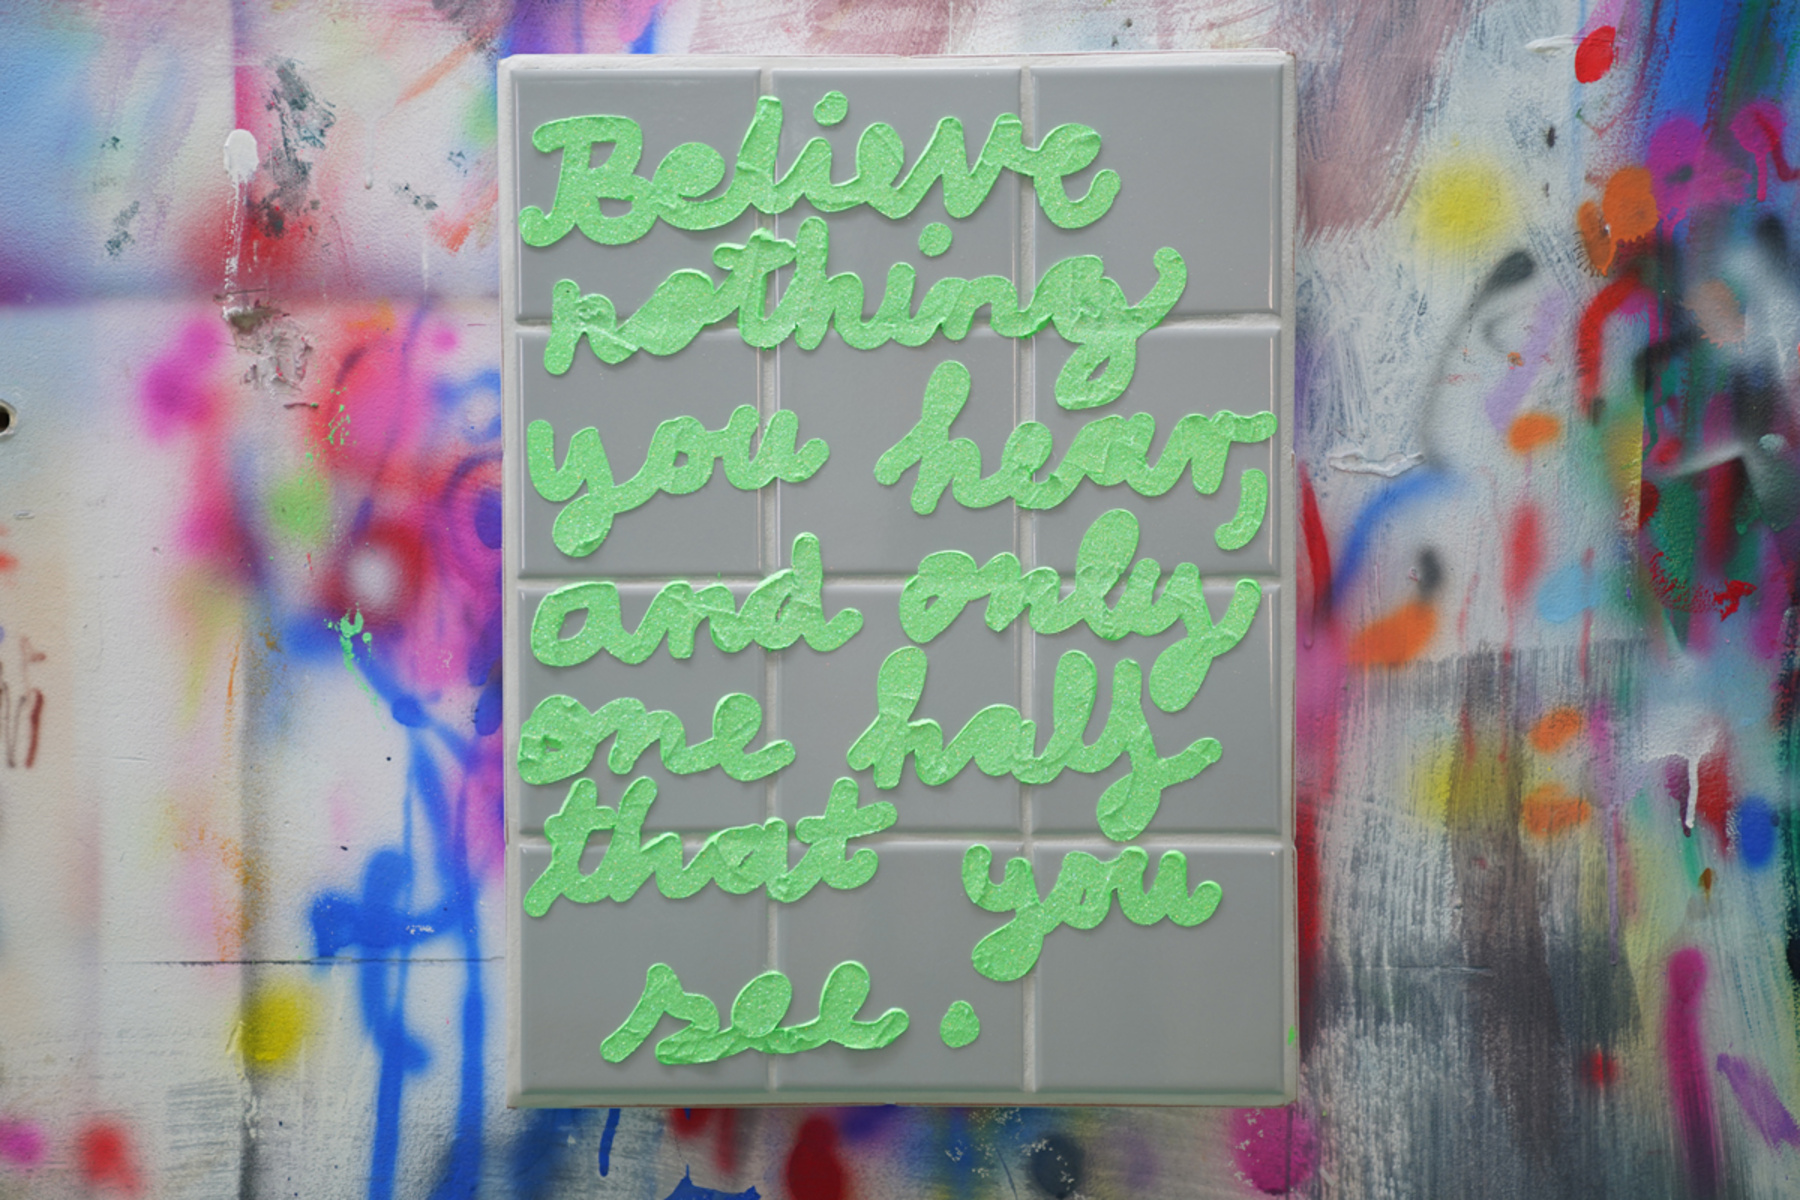 Believe
nothing
you hear,
and only
one half
that you
see.